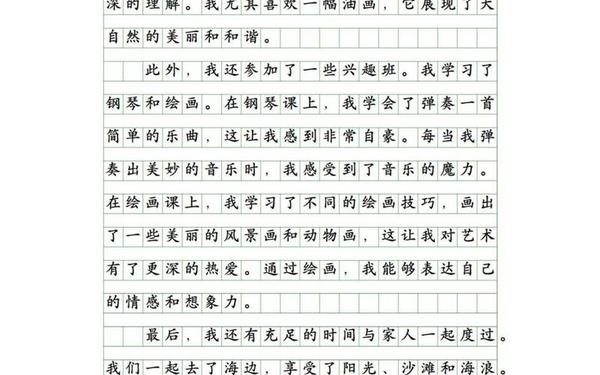 深的理解。我尤其喜欢一幅油画，它展现了大
自然的美丽和和谐。
此外，我还参加了一些兴趣班。我学习了
钢琴和绘画。在钢琴课上，我学会了弹奏一首
简单的乐曲，这让我感到非常自豪。每当我弹
奏出美妙的音乐时，我感受到了音乐的魔力。
在绘画课上，我学习了不同的绘画技巧，画出
了一些美丽的风景画和动物画，这让我对艺术
有了更深的热爱。通过绘画，我能够表达自己
的情感和想象力。
最后，我还有充足的时间与家人一起度过。
我们一起去了海边，享受了阳光、沙滩和海浪。